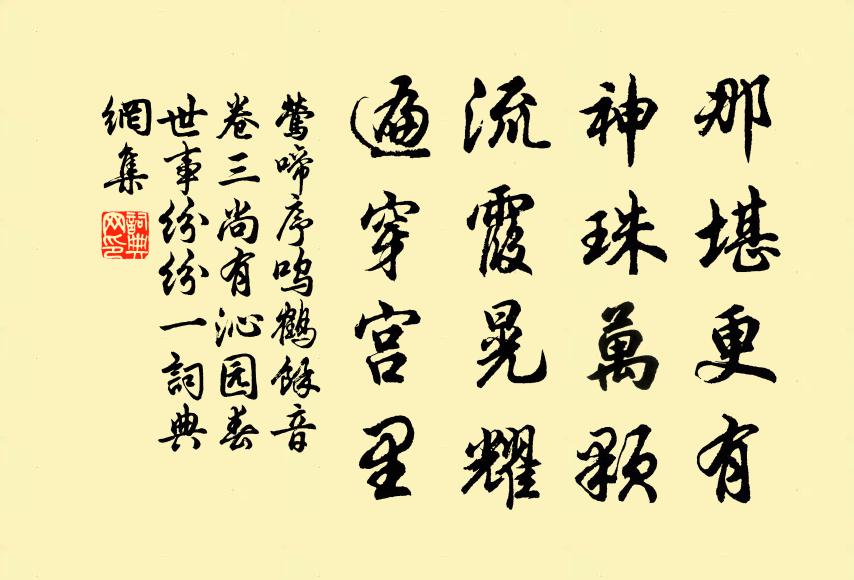 那堪更有
神珠萬顆
流霞晃耀
遍穿宫里
鶯啼序鸣鶴餘音
卷三尚有沁园春
世事纷纷一詞典
網集
詞典
网印